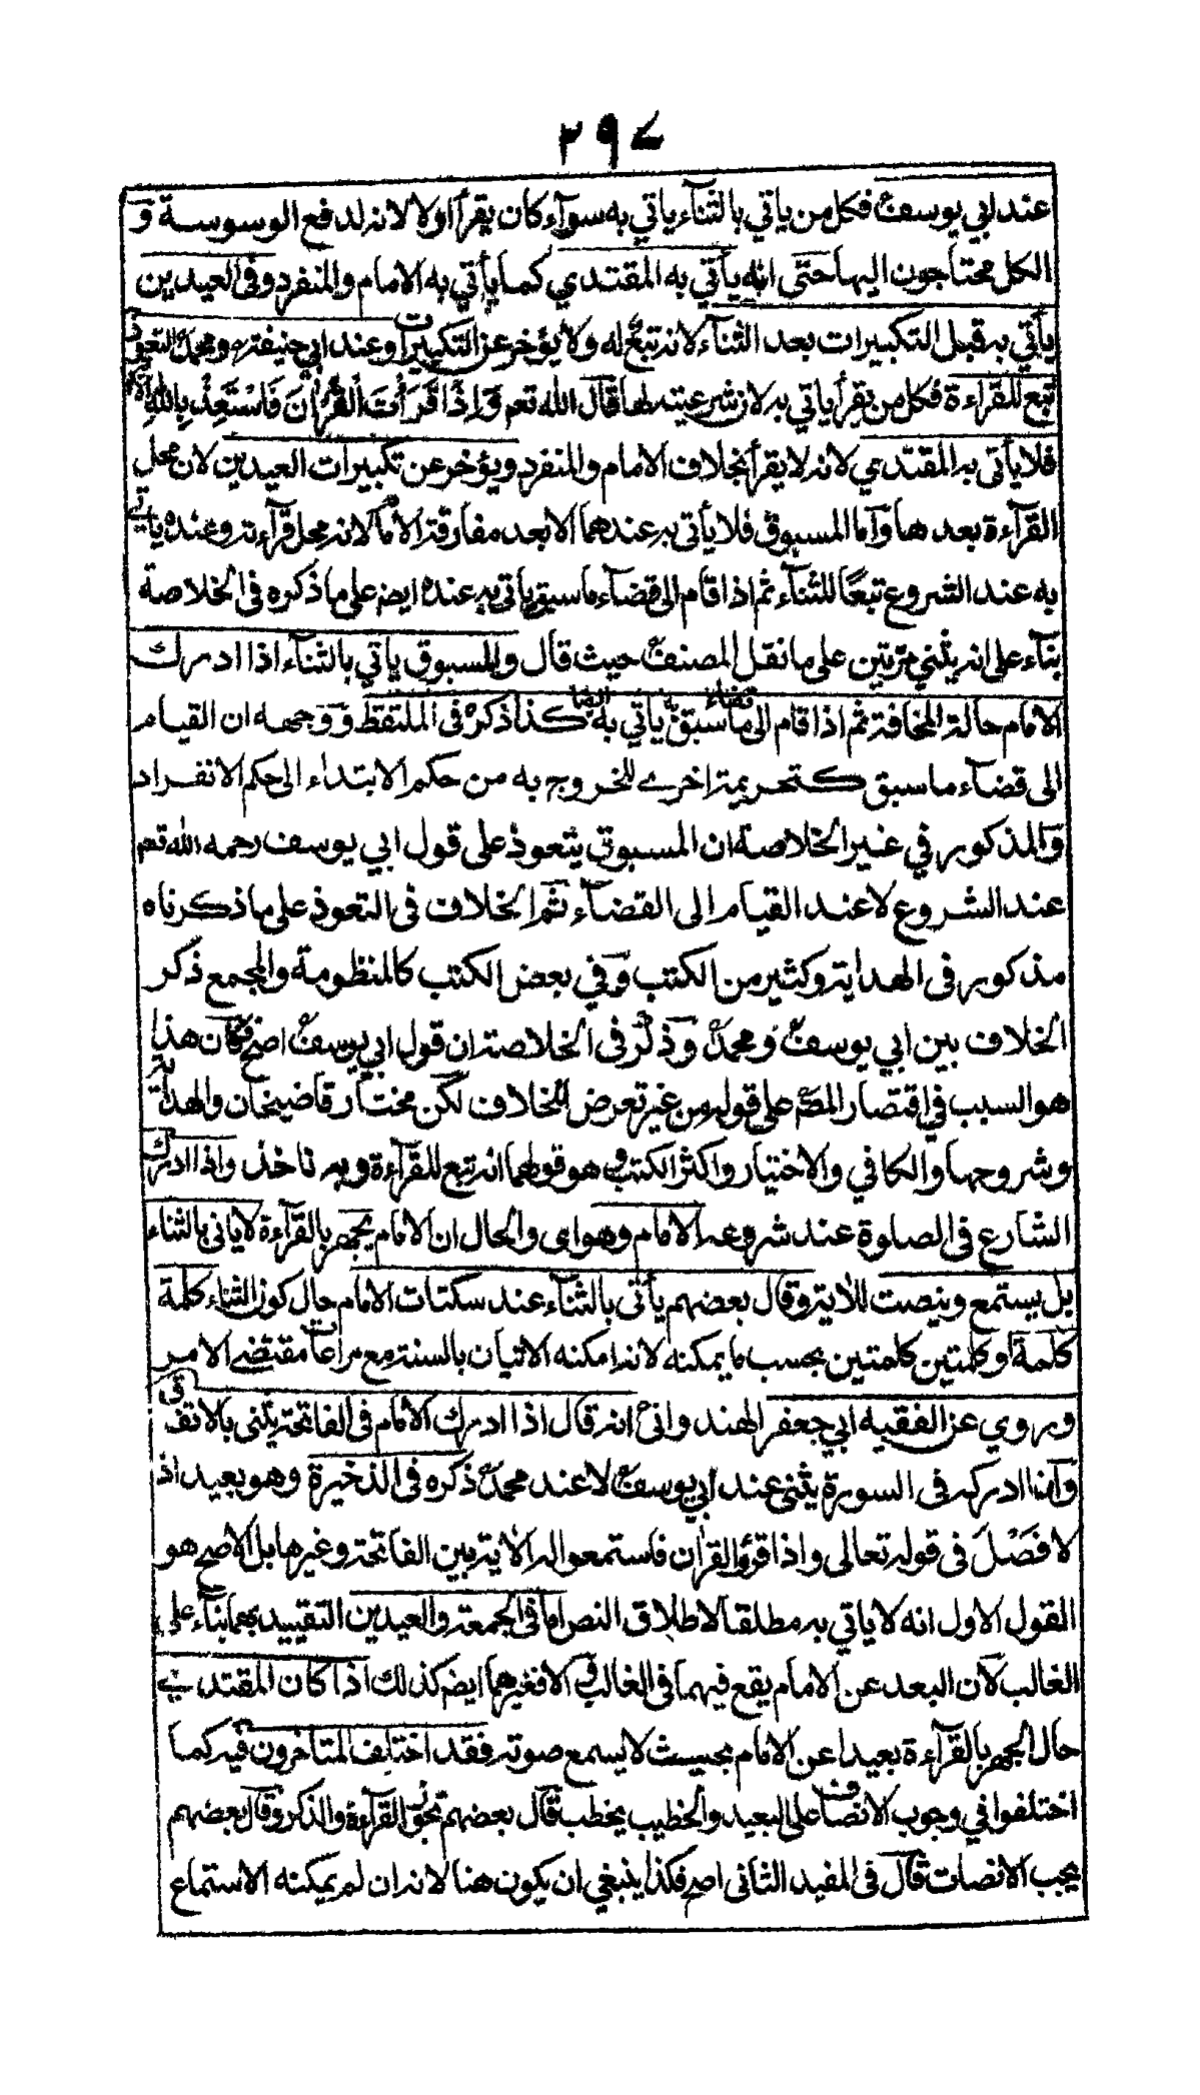 ٢٩٧
عند ابي يوسفؒ فكل من ياتي بالثنآء ياتي به سوآء كان يقرأ اولا لانه لدفع الوسوسة و
الكل محتاجون اليها حتى انه يأتي به المقتدي كما يأتي به الامام والمنفرد وفى العيدين
يأتي به قبل التكبيرات بعد الثنآء لانه تبع له ولا يؤخر عن التكبيرات وعند ابي حنيفة ومحمدؒ التعوذ
تبع للقراءة فكل من يقرأ ياتي به لان شرعيته لها قال الله تعم وَاِذَا قَرَأْتَ الْقُرْاٰنَ فَاسْتَعِذْ بِاللّٰهِ
فلا يأتى به المقتدي لانه لا يقرأ بخلاف الامام والمنفرد ويؤخر عن تكبيرات العيدين لان محل
القرآءة بعدها وآما المسبوق فلا يأتى به عندهما الا بعد مفارقة الامام لانه محل قرآءته وعنده ياتي
به عند الشروع تبعًا للثنآء ثم اذا قام الى قضآء ما سبق ياتي به عنده ايضه على ما ذكره فى الخلاصة
بنآء على انه يثني مرتين على ما نقل المصنفؒ حيث قال والمسبوق ياتي بالثنآء اذا ادرك
الامام حالة المخافتة ثم اذا قام الى قضاء ما سبق به ياتي به ايضا كذا ذكره فى الملتقط ووجهه ان القيام
الى قضآء ما سبق كتحريمة اخرے للخروج به من حكم الابتداء الى حكم الانفراد
والمذكور في غير الخلاصة ان المسبوق يتعوذ على قول ابي يوسف رحمه الله تعم
عند الشروع لا عند القيام الى القضآء ثم الخلاف فى التعوذ على ما ذكرناه
مذكور فى الهداية وكثير من الكتب وفي بعض الكتب كالمنظومة والمجمع ذكر
الخلاف بين ابي يوسفؒ ومحمدؒ وذكر فى الخلاصة ان قول ابي يوسفؒ اصح فكان هذا
هو السبب في اقتصار المصؒ على قوله من غير تعرض للخلاف لكن مختار قاضيخان والهداية
وشروحها والكافي والاختيار واكثر الكتب هو قولهما انه تبع للقرآءة وبه ناخذ واذا ادرك
الشارع فى الصلوة عند شروعه الامام وهو اى والحال ان الامام يجهر بالقرآءة لا ياتى بالثناء
بل يستمع وينصت للآية وقال بعضهم يأتى بالثنآء عند سكتات الامام حال كون الثناء كلمة
كلمة او كلمتين كلمتين بحسب ما يمكنه لانه امكنه الاتيان بالسنة مع مراعات مقتضے الامر
وروي عن الفقيه ابي جعفر الهندوانىؒ انه قال اذا ادرك الامام فى الفاتحة يثنى بالاتفاق
وآما ادركه فى السورة يثنى عند ابي يوسفؒ لا عند محمدؒ ذكره فى الذخيرة وهو بعيد اذ
لا فَصْلَ فى قوله تعالى واذا قرئ القراٰن فاستمعوا له الاٰية بين الفاتحة وغيرها بل الاصح هو
القول الاول انه لا ياتي به مطلقا لاطلاق النص اما فى الجمعة والعيدين التقييد بهما بنآء على
الغالب لان البعد عن الامام يقع فيهما فى الغالب والا فغيرهما ايضه كذلك اذا كان المقتدي في
حال الجهر بالقرآءة بعيدا عن الامام بحيث لا يسمع صوته فقد اختلف المتاخرون فيه كما
اختلفوا في وجوب الانصات على البعيد والخطيب يخطب قال بعضهم تجوز القرآءة والذكر وقال بعضهم
يجب الانصات قال فى المفيد الثانى اصح فكذا ينبغي ان يكون هنا لانه ان لم يمكنه الاستماع